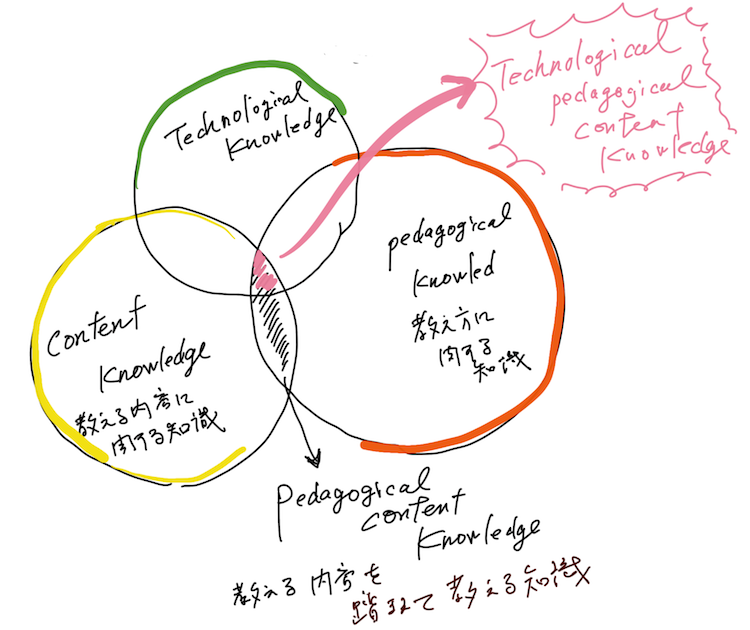 Technological
Knowledge
Technological
pedagogical
content
Knowledge
pedagogical
Knowled
教え方に
関する
知識
Content
Knowledge
教える内容に
関する知識
Pedagogical
content
Knowledge
教える内容を
踏まえて教える知識